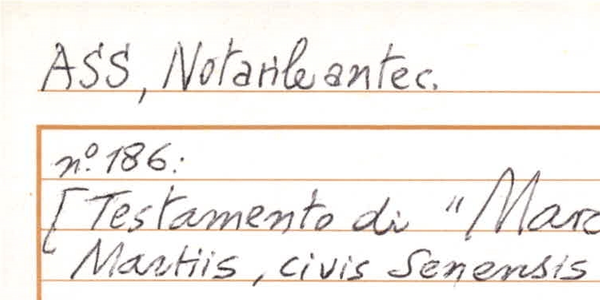 ASS, Notarile antec.
n.º 186:
[Testamento di "Marc
Martiis, civis Senensis